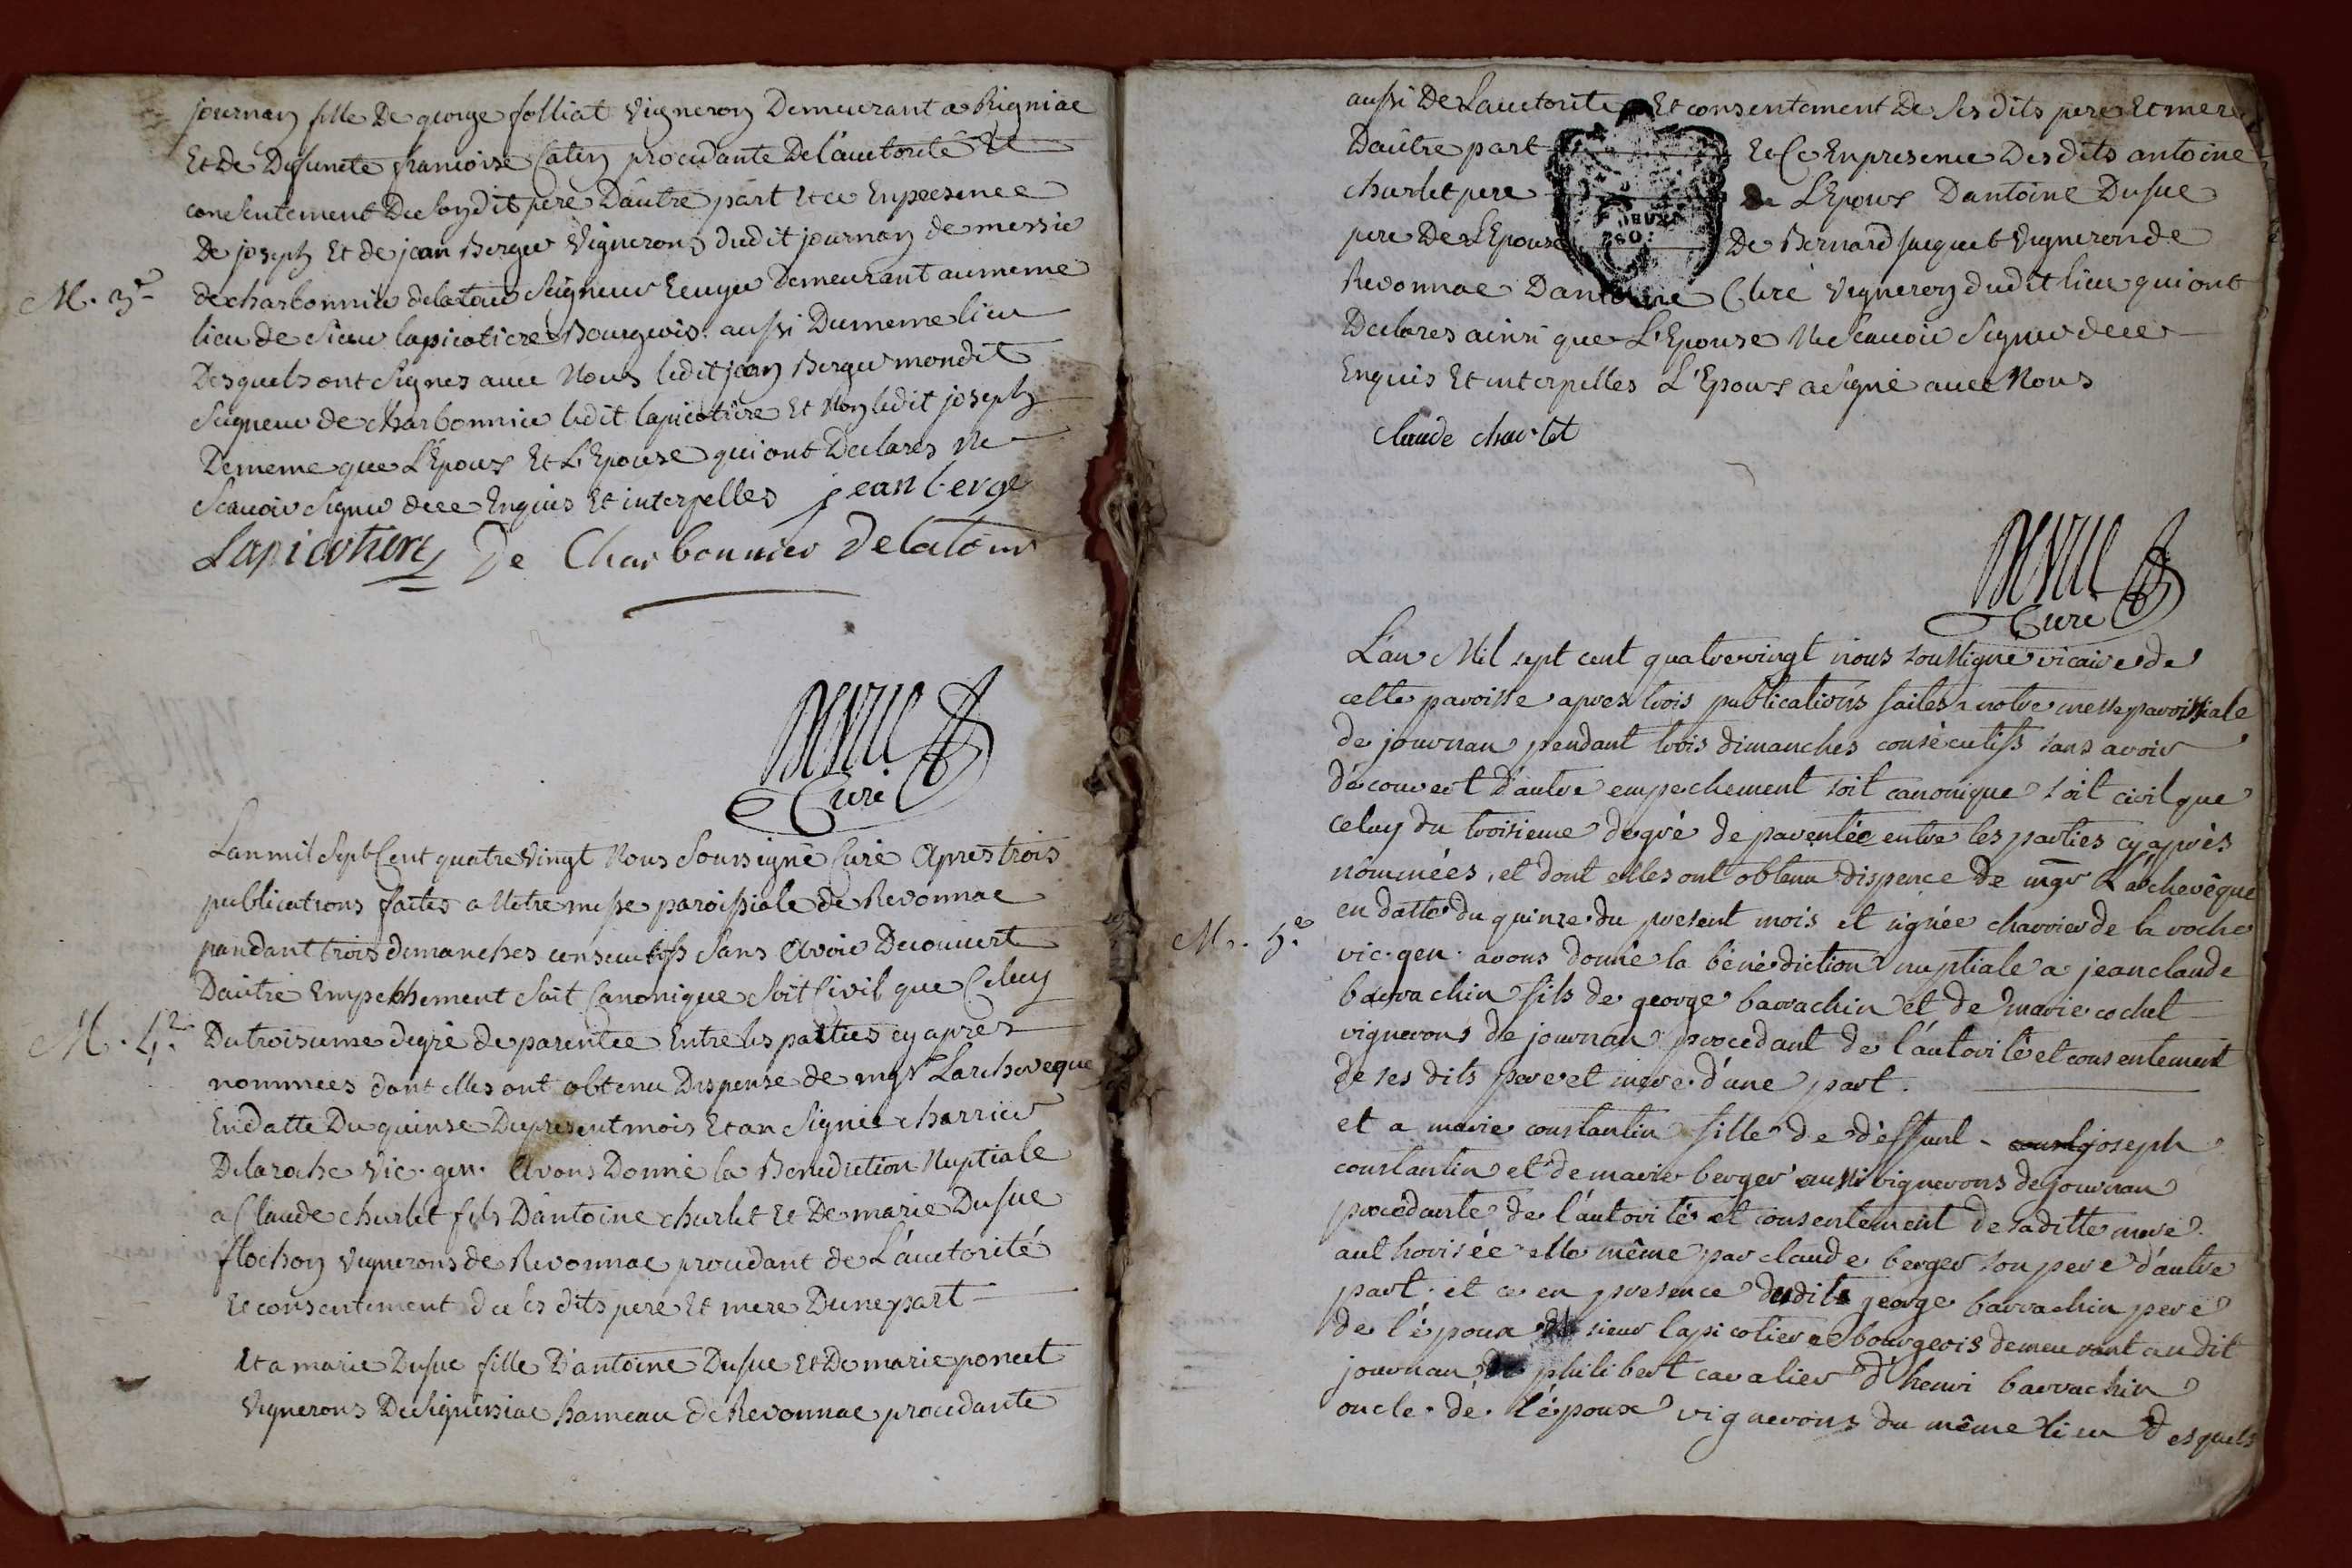 journan fille De george folliat Vigneron Demeurant a Rigniac
Et de Defuncte francoise Catin procedante De l'auctorité Et
consentement De sondit pere D'autre part Et ce En presence
De joseph Et de jean Berger Vignerons dudit journan de messire
M. 3e
de charbonnier delatour Seigneur Ecuyer Demeurant au meme
lieu de sieur lapicotiere Bourgeois aussi Du meme lieu
Desquels ont Signes avec Nous ledit jean Berger mondit
Seigneur de charbonnier ledit lapicotiere Et Non ledit joseph
De meme que L'Epoux Et L'Epouse qui ont Declares Ne
Scavoir Signer de ce Enquis Et interpelles jean berge
Lapicotiere De Charbonnier Delatour
Curé
L'an mil Sept Cent quatre Vingt Nous Soussigné Curé Apres trois
publications faites a Notre messe paroissiale de Revonnac
pandant trois dimanches consecutifs Sans Avoir Decouvert
D'autre Empechement Soit Canonique Soit Civil que Celuy
M. 4e
Du troisieme degré de parentée Entre les parties cy apres
nommées dont elles ont obtenu Dispense de mgr L'archeveque
En datte Du quinse Du present mois Et an Signée charrier
Delaroche Vic. gen. Avons Donné la Benediction Nuptiale
a Claude charlet fils D'antoine charlet Et De marie Dufue
flochon Vignerons de Revonnac procedant de L'auctorité
Et consentement de ses dits pere Et mere D'une part
Et a marie Dufue fille D'antoine Dufue Et De marie poncet
Vignerons De Signissiac hameau de Revonnac procedante
aussi De L'auctorité Et consentement De Ses dits pere Et mere
D'autre part Et Ce En presence Desdits antoine
charlet pere De L'Epoux D'antoine Dufue
pere De L'Epouse De Bernard jacquet Vigneron de
Revonnac D'antoine Cluré Vigneron dudit lieu qui ont
Declares ainsi que L'Epouse Ne Scavoir Signer de ce
Enquis Et interpelles L'Epoux a Signé avec Nous
claude charlet
Curé
L'an Mil sept cent quatre vingt nous soussigné vicaire de
cette paroisse apres trois publications faites a notre messe paroissiale
de journan pendant trois dimanches consécutifs sans avoir
découvert d'autre empechement soit canonique soit civil que
celuy du troisieme degré de parentée entre les parties cy après
nommées, et dont elles ont obtenu dispence de mgr L'archevêque
en datte du quinze du present mois et signée charrier de la roche
M. 5e
vic. gen. avons donné la bénédiction nuptiale a jean claude
barrachin fils de george barrachin et de marie cochet
vignerons de journan procedant de l'autorité et consentement
de ses dits pere et mere d'une part.
et a marie constantin fille de deffunt joseph
constantin et de marie berger aussi vignerons de journan
procédante de l'autorité et consentement de sa ditte mere
authorisée elle même par claude berger son pere d'autre
part. et ce en presence dudit george barrachin pere
de l'époux sieur lapicotiere bourgeois demeurant audit
journan philibert cavalier d'henri barrachin
oncle de l'époux vignerons du même lieu desquels